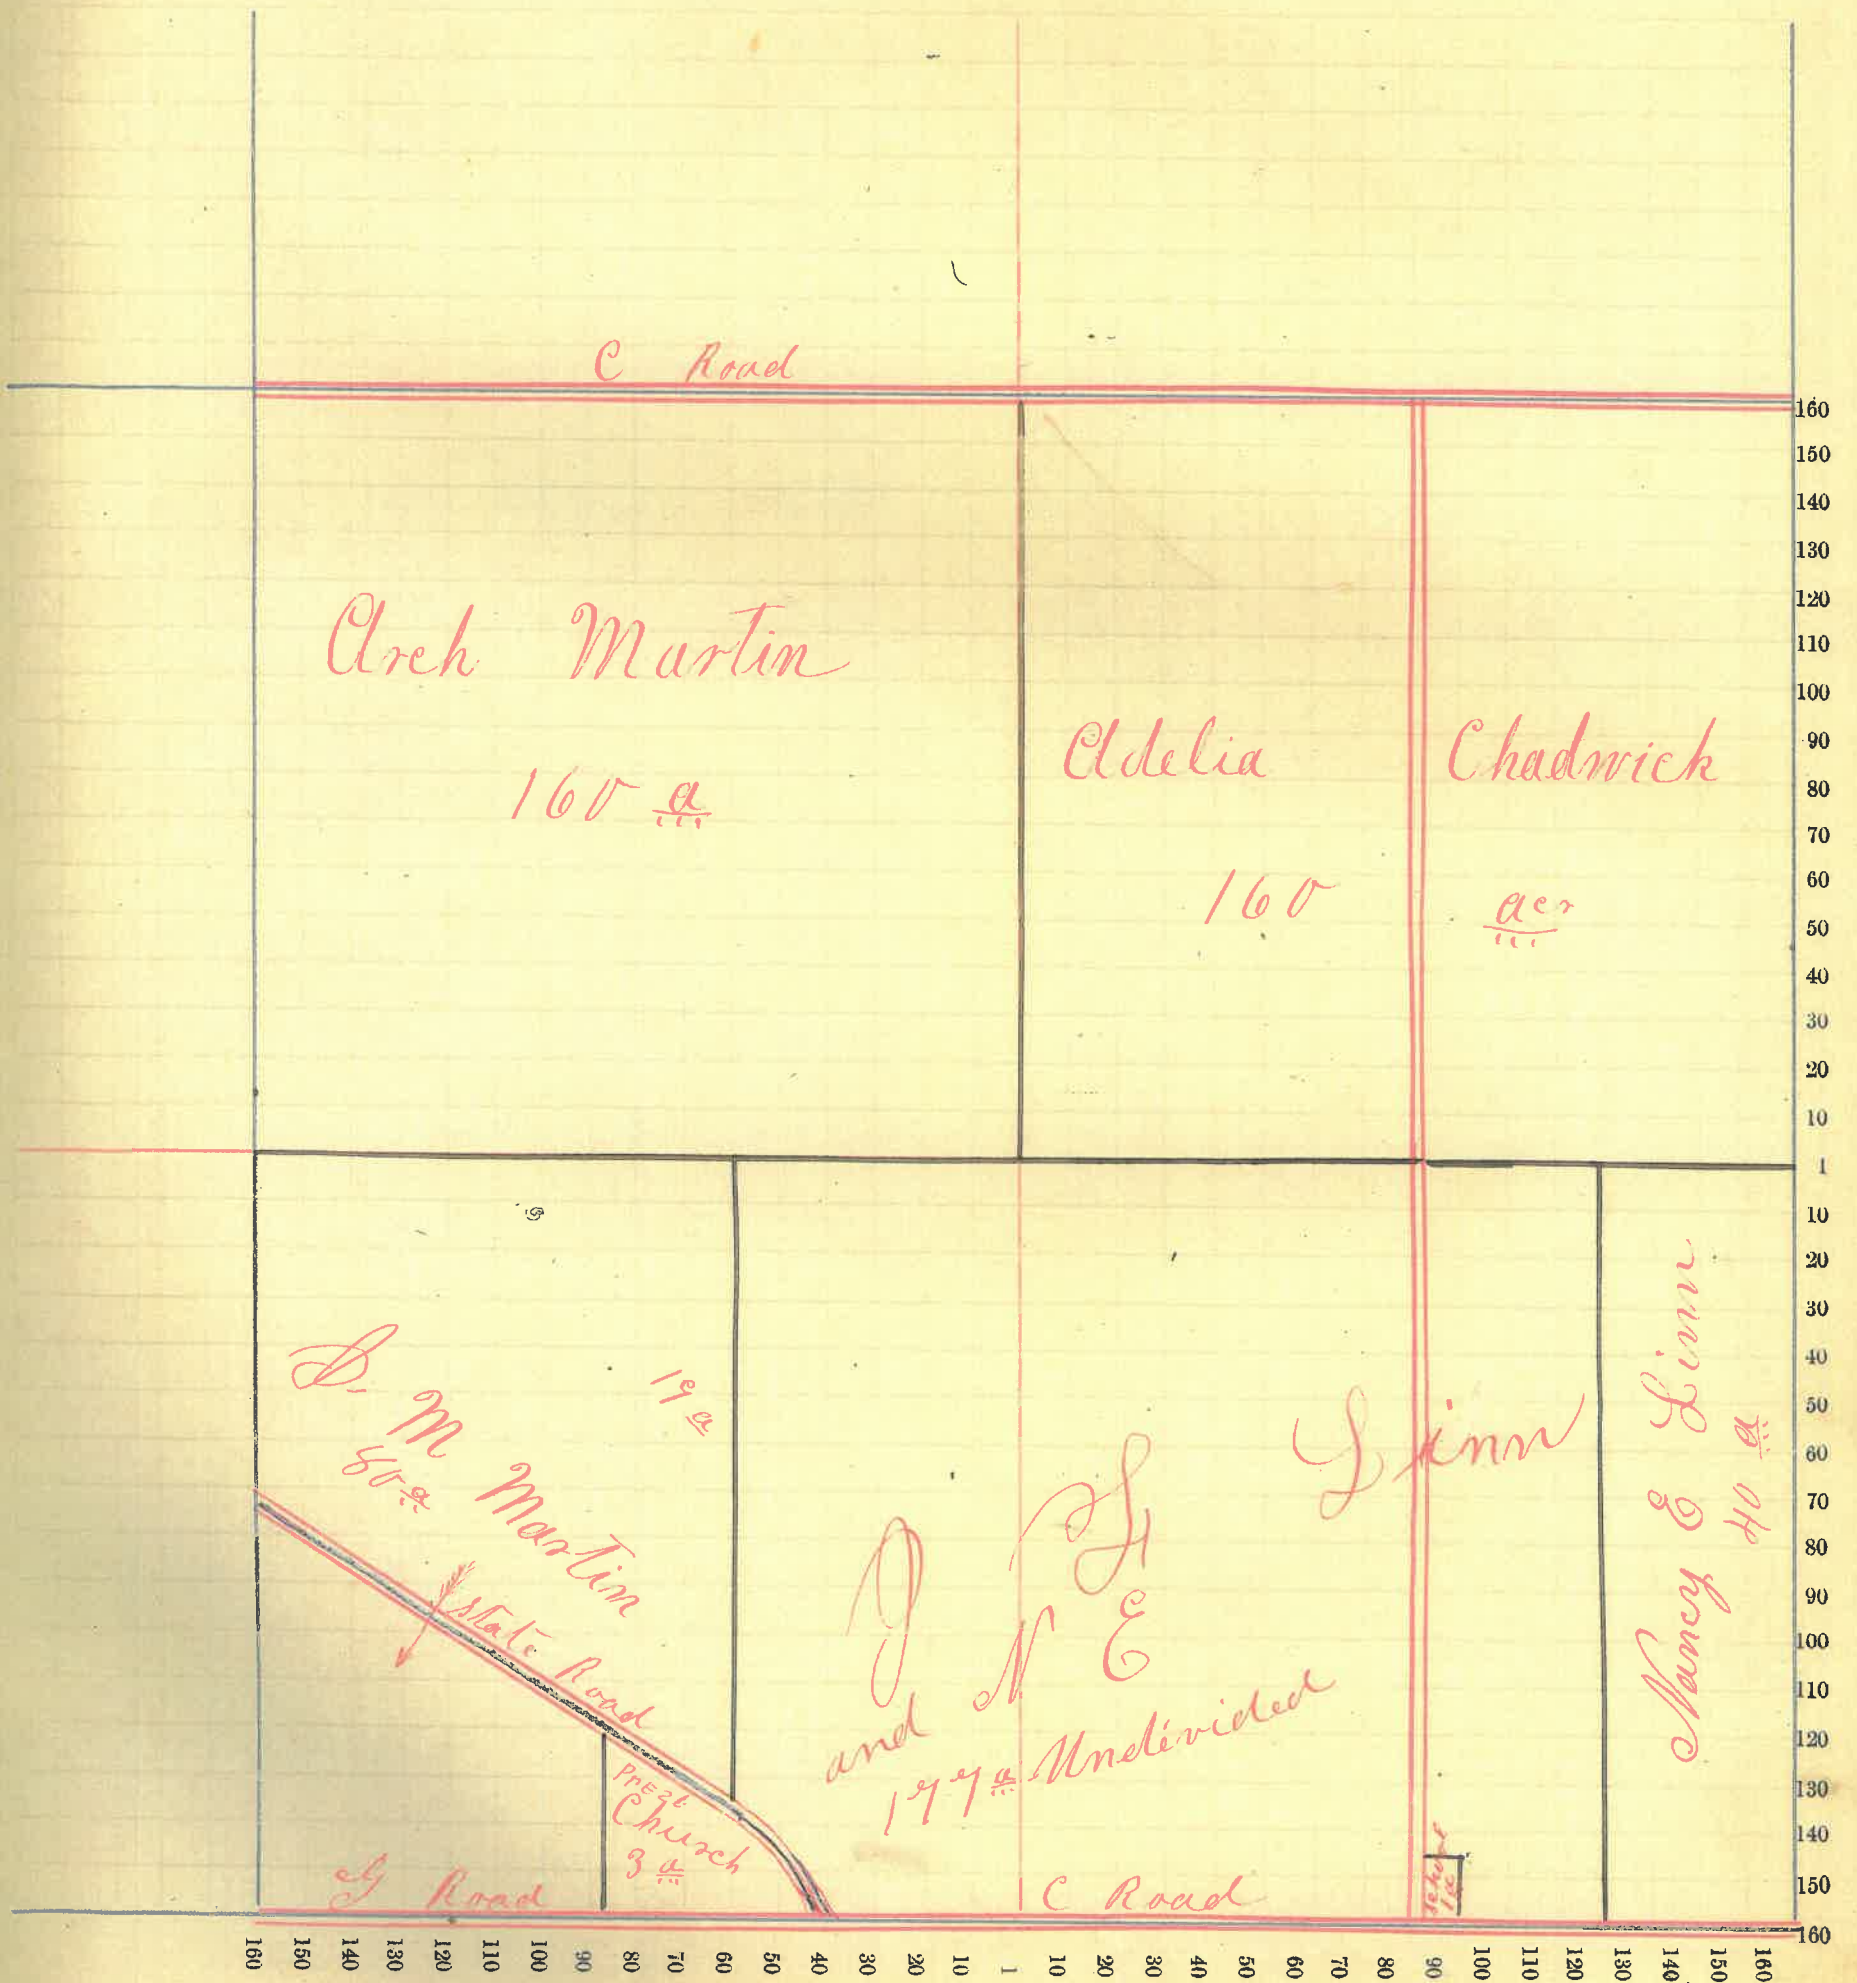 C Road
Arch Martin
160 a
Adelia Chadwick
160 acr
S. M Martin
80 a
19 a
State Road
Church
3 a
G Road
J F Linn
and N E
177 a Undivided
C Road
School
1 a
Nancy E Linn
40 a
160
150
140
130
120
110
100
90
80
70
60
50
40
30
20
10
1
10
20
30
40
50
60
70
80
90
100
110
120
130
140
150
160
160 150 140 130 120 110 100 90 80 70 60 50 40 30 20 10 1 10 20 30 40 50 60 70 80 90 100 110 120 130 140 150 160